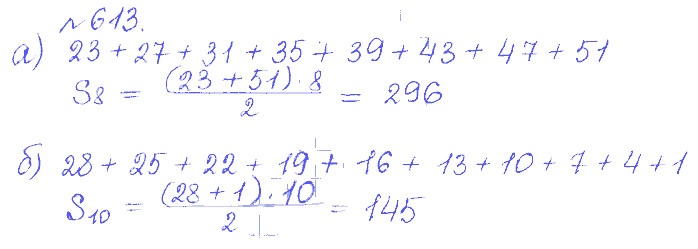 № 613.
а) 23 + 27 + 31 + 35 + 39 + 43 + 47 + 51
S₈ = (23 + 51) · 8 / 2 = 296
б) 28 + 25 + 22 + 19 + 16 + 13 + 10 + 7 + 4 + 1
S₁₀ = (28 + 1) · 10 / 2 = 145